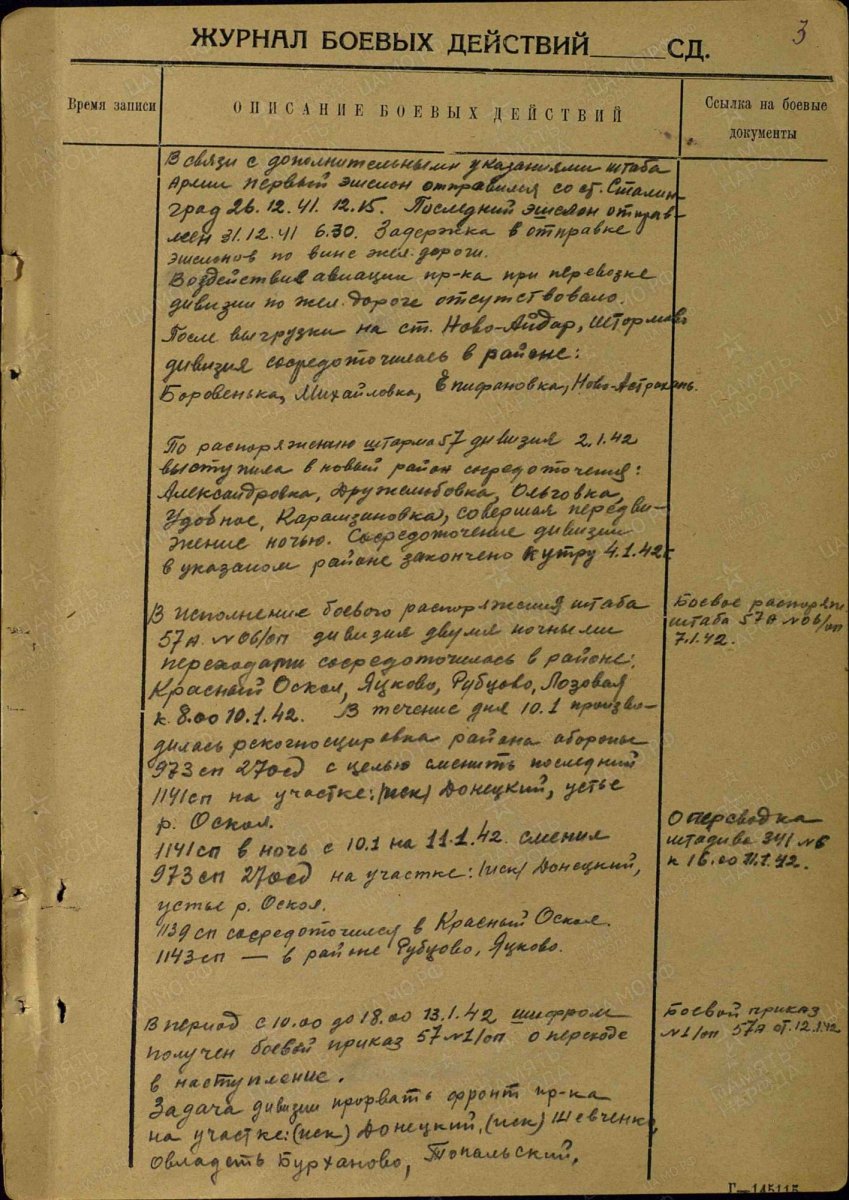 3
ЖУРНАЛ БОЕВЫХ ДЕЙСТВИЙ______СД.
Время записи
ОПИСАНИЕ БОЕВЫХ ДЕЙСТВИЙ
Ссылка на боевые
документы
В связи с дополнительными указаниями штаба
Армии первый эшелон отправился со ст. Сталин-
град 26.12.41. 12.15. Последний эшелон отправ-
лен 31.12.41 6.30. Задержка в отправке
эшелонов по вине жел. дороги.
Воздействие авиации пр-ка при перевозке
дивизии по жел. дороге отсутствовало.
После выгрузки на ст. Ново-Айдар, Штормово
дивизия сосредоточилась в районе:
Боровенька, Михайловка, Епифановка, Ново-Астрахань.
По распоряжению штарма 57 дивизия 2.1.42
выступила в новый район сосредоточения:
Александровка, Дружелюбовка, Ольговка,
Удобное, Карамзиновка, совершая передви-
жение ночью. Сосредоточение дивизии
в указаном районе закончено к утру 4.1.42г
В исполнение боевого распоряжения штаба
57А №06/оп дивизия двумя ночными
переходами сосредоточилась в районе:
Красный Оскол, Яцково, Рубцово, Лозовая
к 8.00 10.1.42. В течение дня 10.1 произво-
дилась рекогносцировка района обороны
973 сп 270сд с целью сменить последний
1141сп на участке: (иск) Донецкий, устье
р. Оскол.
1141сп в ночь с 10.1 на 11.1.42 сменил
973 сп 270сд на участке: (иск) Донецкий,
устье р. Оскол.
1139 сп сосредоточился в Красный Оскол.
1143 сп — в районе Рубцово, Яцково.
В период с 10.00 до 18.00 13.1.42 шифром
получен боевой приказ 57 №1/оп о переходе
в наступление.
Задача дивизии прорвать фронт пр-ка
на участке: (иск) Донецкий, (иск) Шевченко,
овладеть Бурханово, Топальский,
Боевое распоряж.
штаба 57А №06/оп
7.1.42.
Оперсводка
штадива 341 №6
к 16.00 11.1.42.
Боевой приказ
№1/оп 57А от 12.1.42
Г—145115